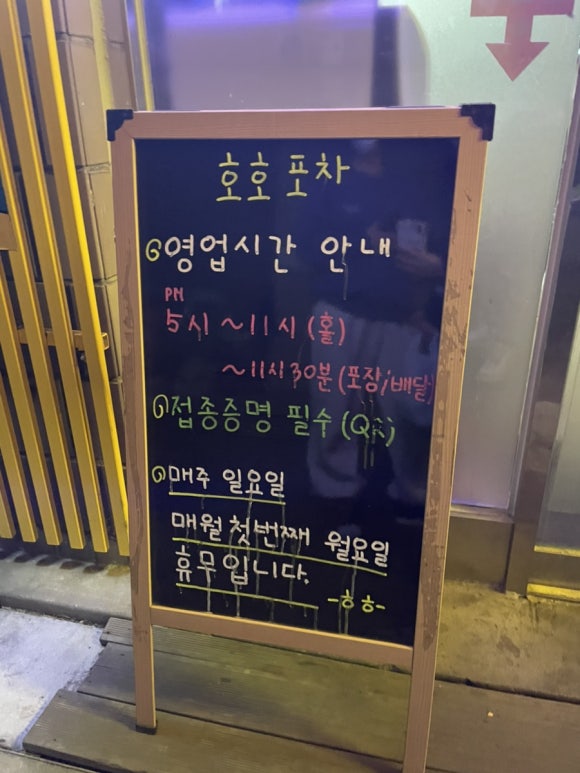 호호포차
영업시간 안내
PM
5시 ~ 11시 (홀)
~11시 30분 (포장, 배달)
접종증명 필수 (QR)
매주 일요일
매월 첫번째 월요일
휴무입니다.
-ㅎㅎ-